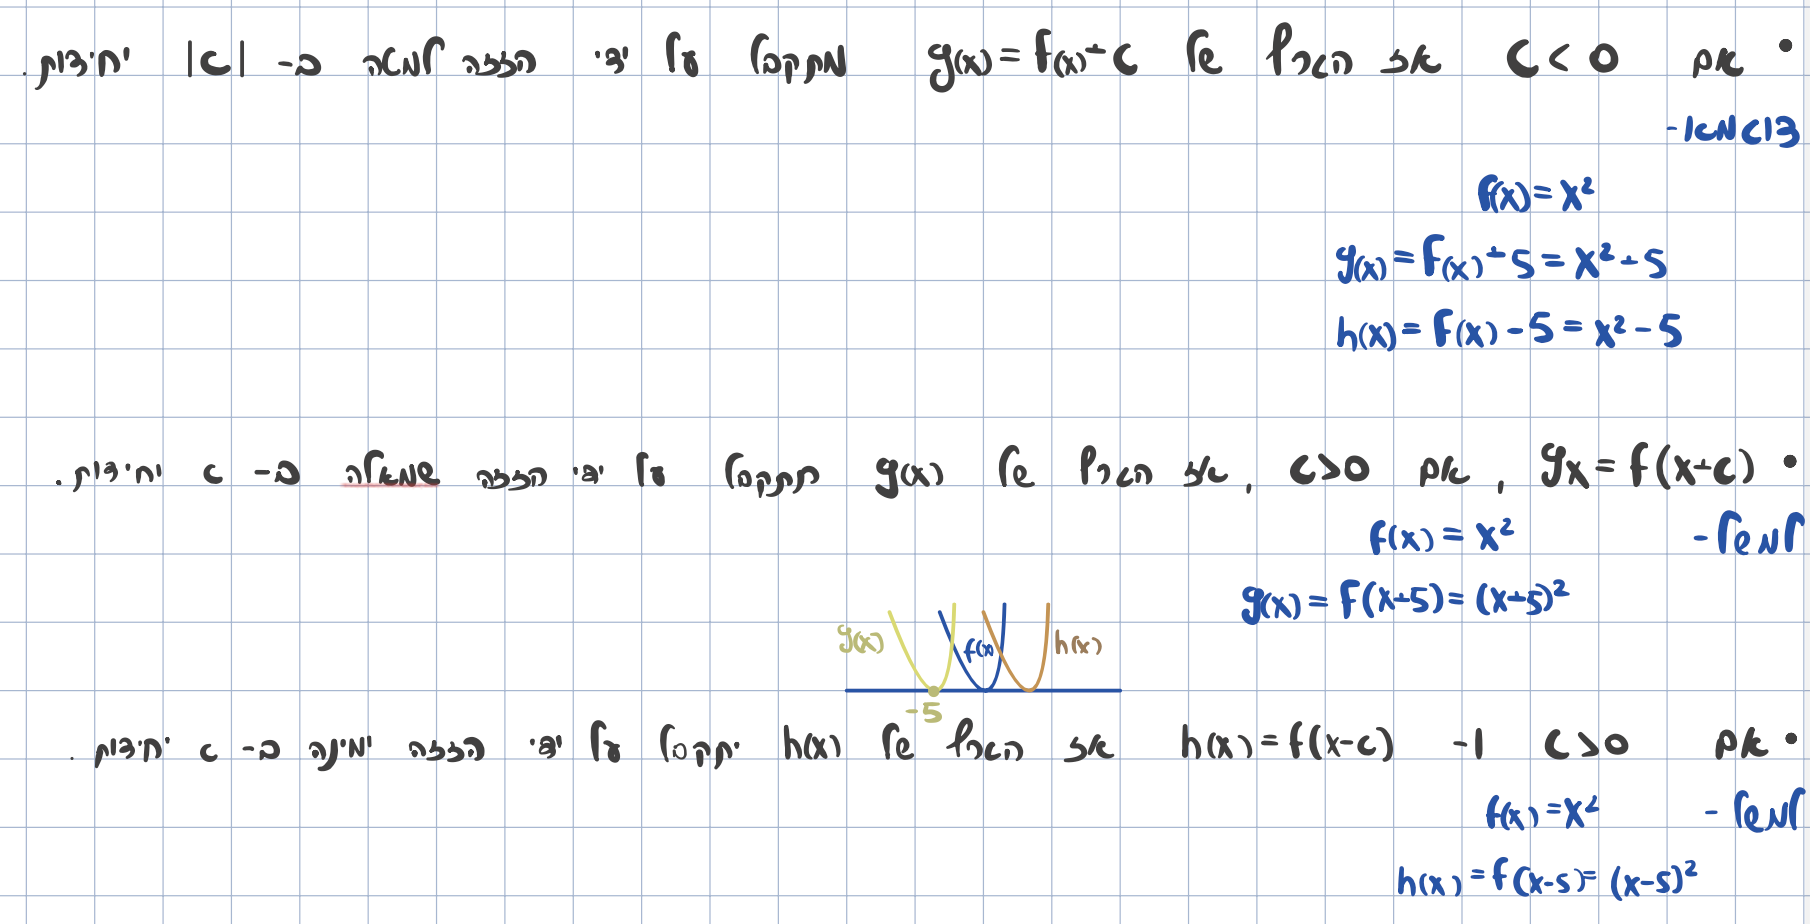 • אם C < 0 אז הגרף של g(x) = f(x)+C מתקבל על ידי הזזה למטה ב- |C| יחידות.
דוגמאות-
f(x) = x²
g(x) = f(x) + 5 = x² + 5
h(x) = f(x) - 5 = x² - 5
• gx = f(x+c) , אם c>0 , אז הגרף של g(x) תתקבל על ידי הזזה שמאלה ב- c יחידות.
למשל - f(x) = x²
g(x) = f(x+5) = (x+5)²
g(x) f(x) h(x)
-5
• אם c>0 ו- h(x) = f(x-c) אז הגרף של h(x) יתקבל על ידי הזזה ימינה ב- c יחידות.
למשל - f(x) = x²
h(x) = f(x-5) = (x-5)²